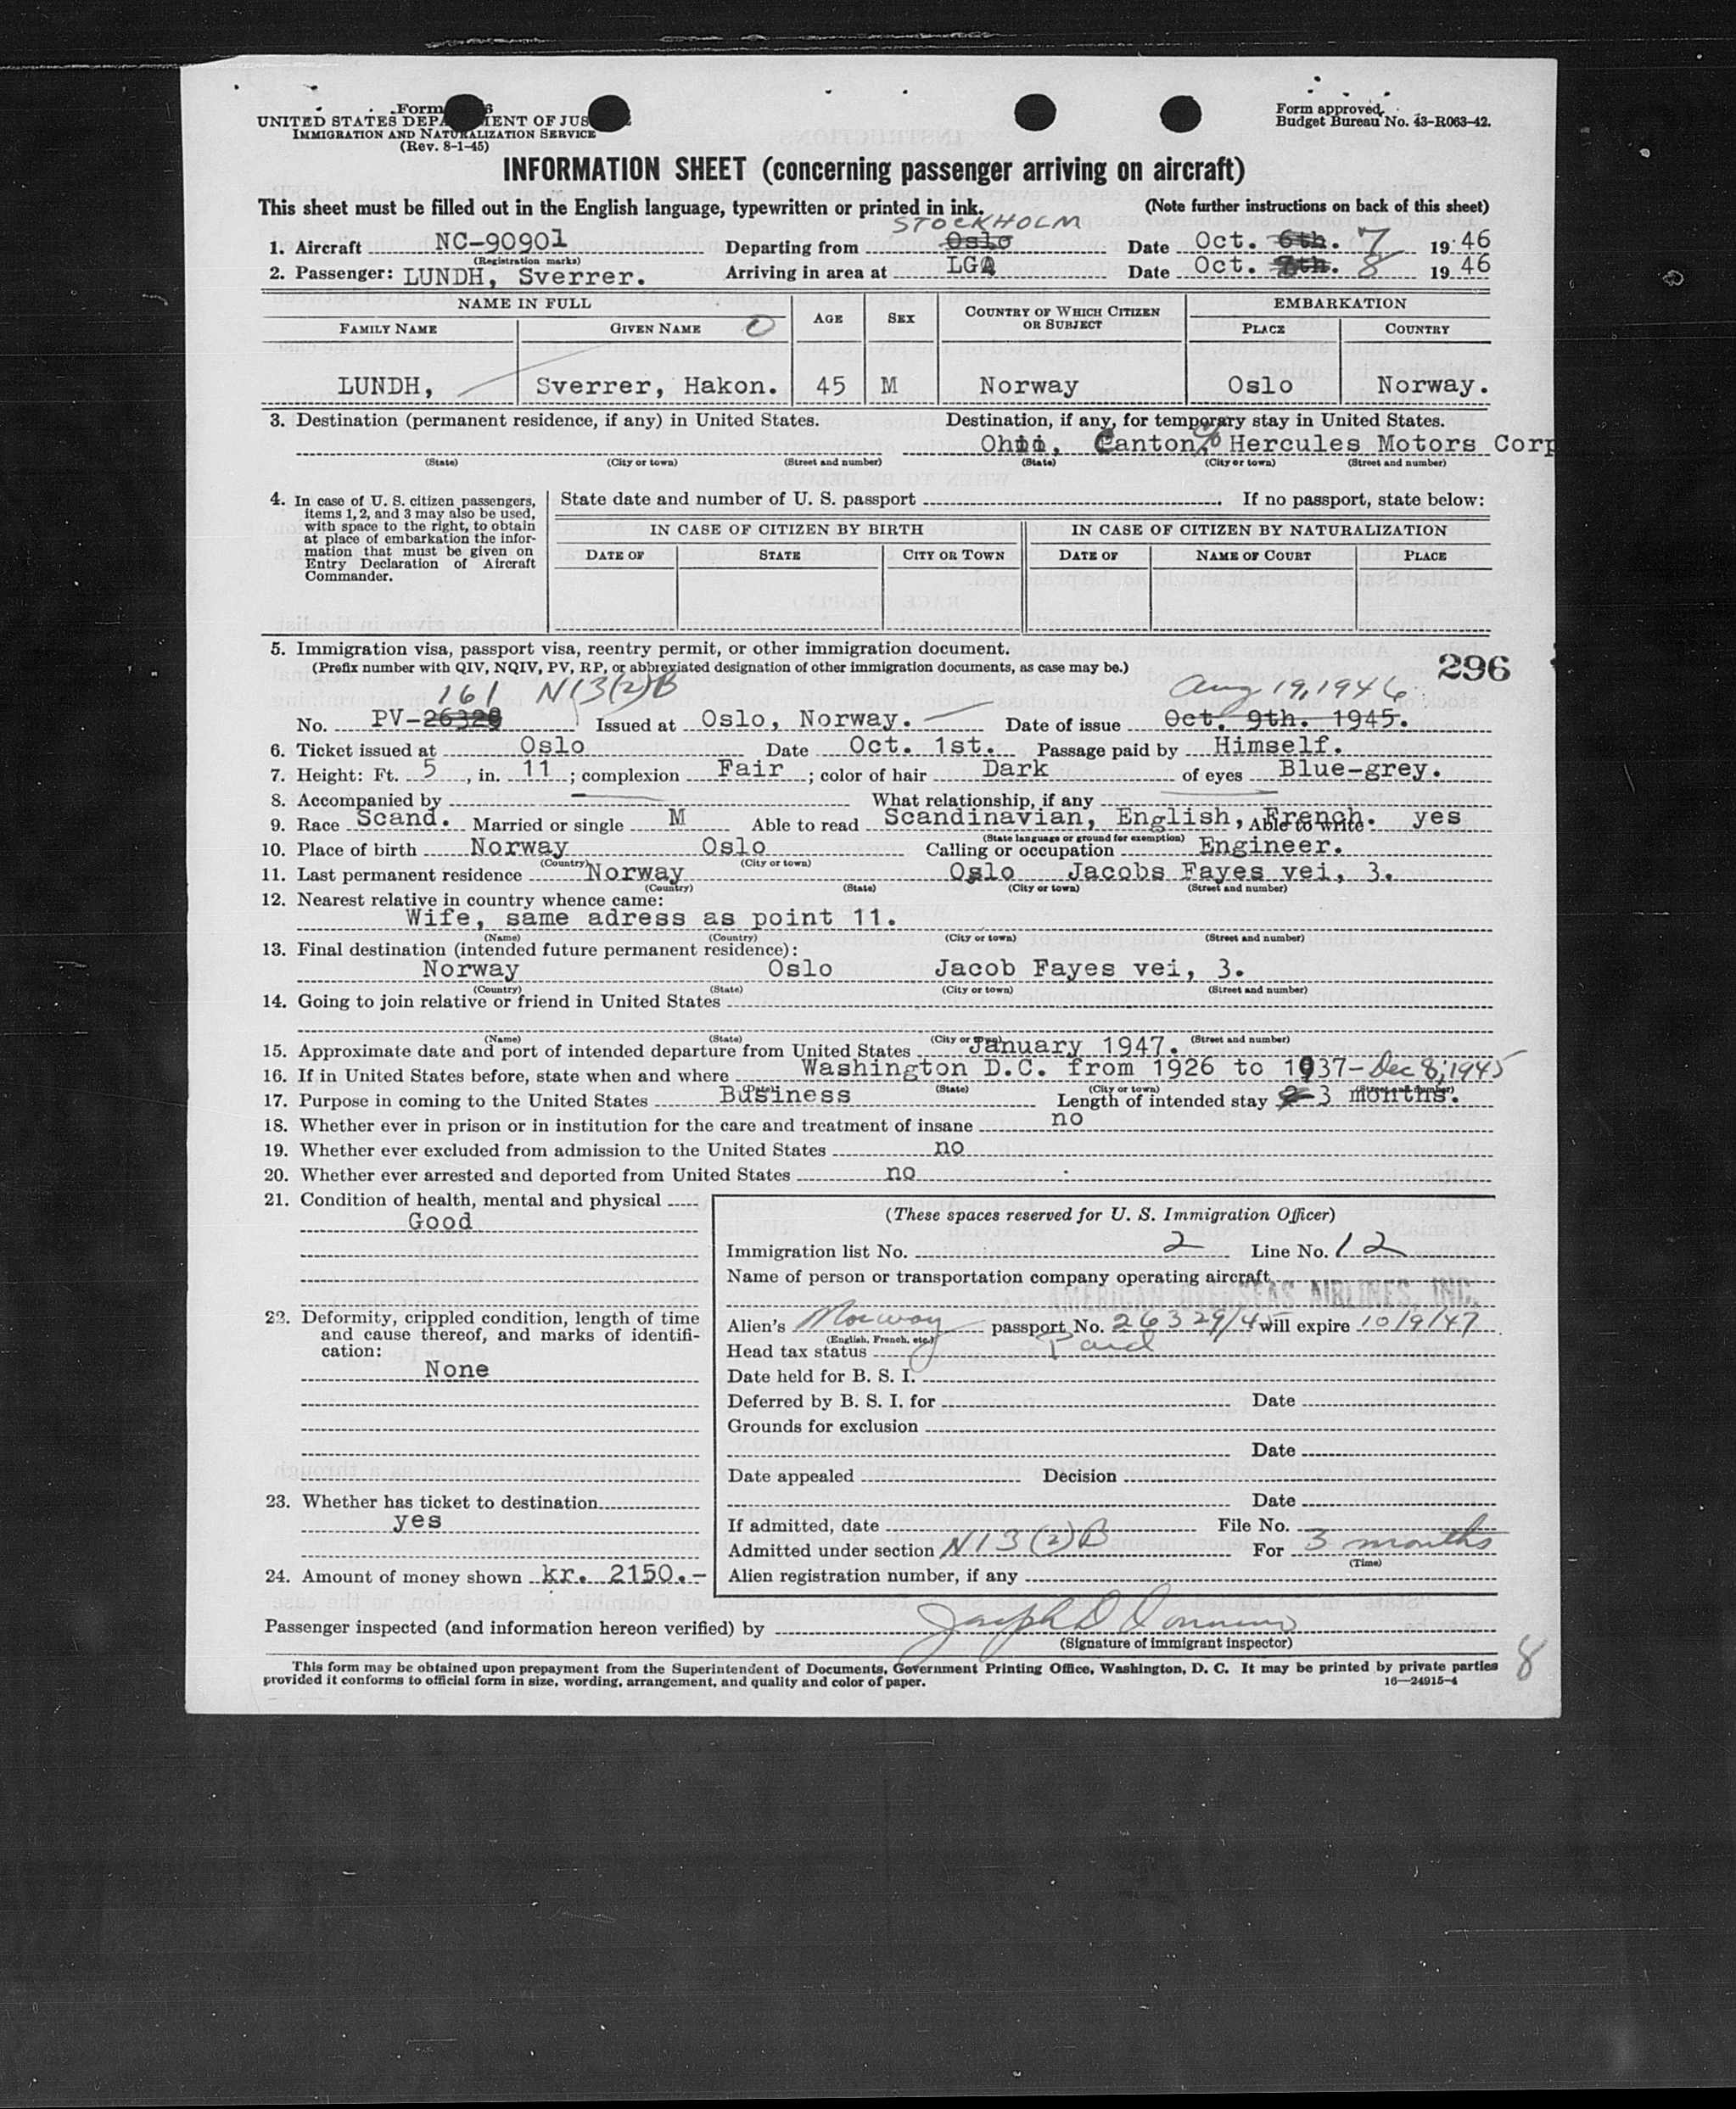 Form
UNITED STATES DEPARTMENT OF JUS
IMMIGRATION AND NATURALIZATION SERVICE
(Rev. 8-1-45)
Form approved.
Budget Bureau No. 43-R063-42.
INFORMATION SHEET (concerning passenger arriving on aircraft)
This sheet must be filled out in the English language, typewritten or printed in ink. (Note further instructions on back of this sheet)
STOCKHOLM
1. Aircraft NC-90901 Departing from Oslo Date Oct. 6th. 7 1946
(Registration marks)
2. Passenger: LUNDH, Sverrer. Arriving in area at LGA Date Oct. 7th. 8 1946
NAME IN FULL AGE SEX COUNTRY OF WHICH CITIZEN OR SUBJECT EMBARKATION
FAMILY NAME GIVEN NAME O PLACE COUNTRY
LUNDH, Sverrer, Hakon. 45 M Norway Oslo Norway.
3. Destination (permanent residence, if any) in United States. Destination, if any, for temporary stay in United States.
Ohio, Canton, c/o Hercules Motors Corp
(State) (City or town) (Street and number) (State) (City or town) (Street and number)
4. In case of U. S. citizen passengers, items 1, 2, and 3 may also be used, with space to the right, to obtain at place of embarkation the information that must be given on Entry Declaration of Aircraft Commander.
State date and number of U. S. passport If no passport, state below:
IN CASE OF CITIZEN BY BIRTH IN CASE OF CITIZEN BY NATURALIZATION
DATE OF STATE CITY OR TOWN DATE OF NAME OF COURT PLACE
5. Immigration visa, passport visa, reentry permit, or other immigration document.
(Prefix number with QIV, NQIV, PV, RP, or abbreviated designation of other immigration documents, as case may be.)
296
161 N13(2)B Aug 19, 1946
No. PV-26328 Issued at Oslo, Norway. Date of issue Oct. 9th. 1945.
6. Ticket issued at Oslo Date Oct. 1st. Passage paid by Himself.
7. Height: Ft. 5, in. 11; complexion Fair; color of hair Dark of eyes Blue-grey.
8. Accompanied by What relationship, if any
9. Race Scand. Married or single M Able to read Scandinavian, English, French. Able to write yes
(State language or ground for exemption)
10. Place of birth Norway Oslo Calling or occupation Engineer.
(Country) (City or town)
11. Last permanent residence Norway Oslo Jacobs Fayes vei, 3.
(Country) (State) (City or town) (Street and number)
12. Nearest relative in country whence came:
Wife, same adress as point 11.
(Name) (Country) (City or town) (Street and number)
13. Final destination (intended future permanent residence):
Norway Oslo Jacob Fayes vei, 3.
(Country) (State) (City or town) (Street and number)
14. Going to join relative or friend in United States
(Name) (State) (City or town) (Street and number)
15. Approximate date and port of intended departure from United States January 1947.
16. If in United States before, state when and where Washington D.C. from 1926 to 1937-Dec 8, 1945
(Date) (State) (City or town) (Street and number)
17. Purpose in coming to the United States Business Length of intended stay 2-3 months.
18. Whether ever in prison or in institution for the care and treatment of insane no
19. Whether ever excluded from admission to the United States no
20. Whether ever arrested and deported from United States no
21. Condition of health, mental and physical
Good
22. Deformity, crippled condition, length of time and cause thereof, and marks of identification:
None
23. Whether has ticket to destination
yes
24. Amount of money shown kr. 2150.-
(These spaces reserved for U. S. Immigration Officer)
Immigration list No. 2 Line No. 12
Name of person or transportation company operating aircraft
AMERICAN OVERSEAS AIRLINES, INC.
Alien's Norway passport No. 26329/45 will expire 10/9/47
(English, French, etc.)
Head tax status Paid
Date held for B. S. I.
Deferred by B. S. I. for Date
Grounds for exclusion
Date
Date appealed Decision
Date
If admitted, date File No.
Admitted under section N13(2)B For 3 months
(Time)
Alien registration number, if any
Passenger inspected (and information hereon verified) by Joseph D
(Signature of immigrant inspector)
8
This form may be obtained upon prepayment from the Superintendent of Documents, Government Printing Office, Washington, D. C. It may be printed by private parties
provided it conforms to official form in size, wording, arrangement, and quality and color of paper. 16—24915-4